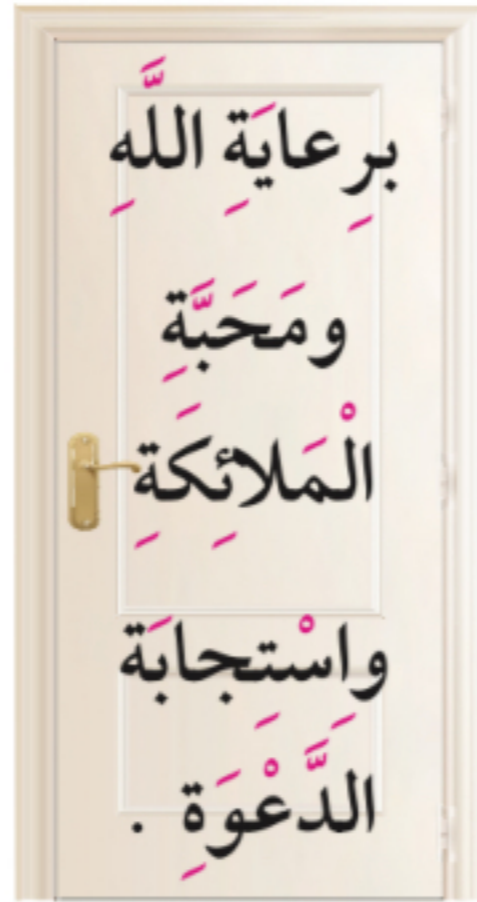 برِعايَةِ اللَّهِ
ومَحَبَّةِ
الْمَلائِكَةِ
واِسْتِجابَة
الدَّعْوَةِ .